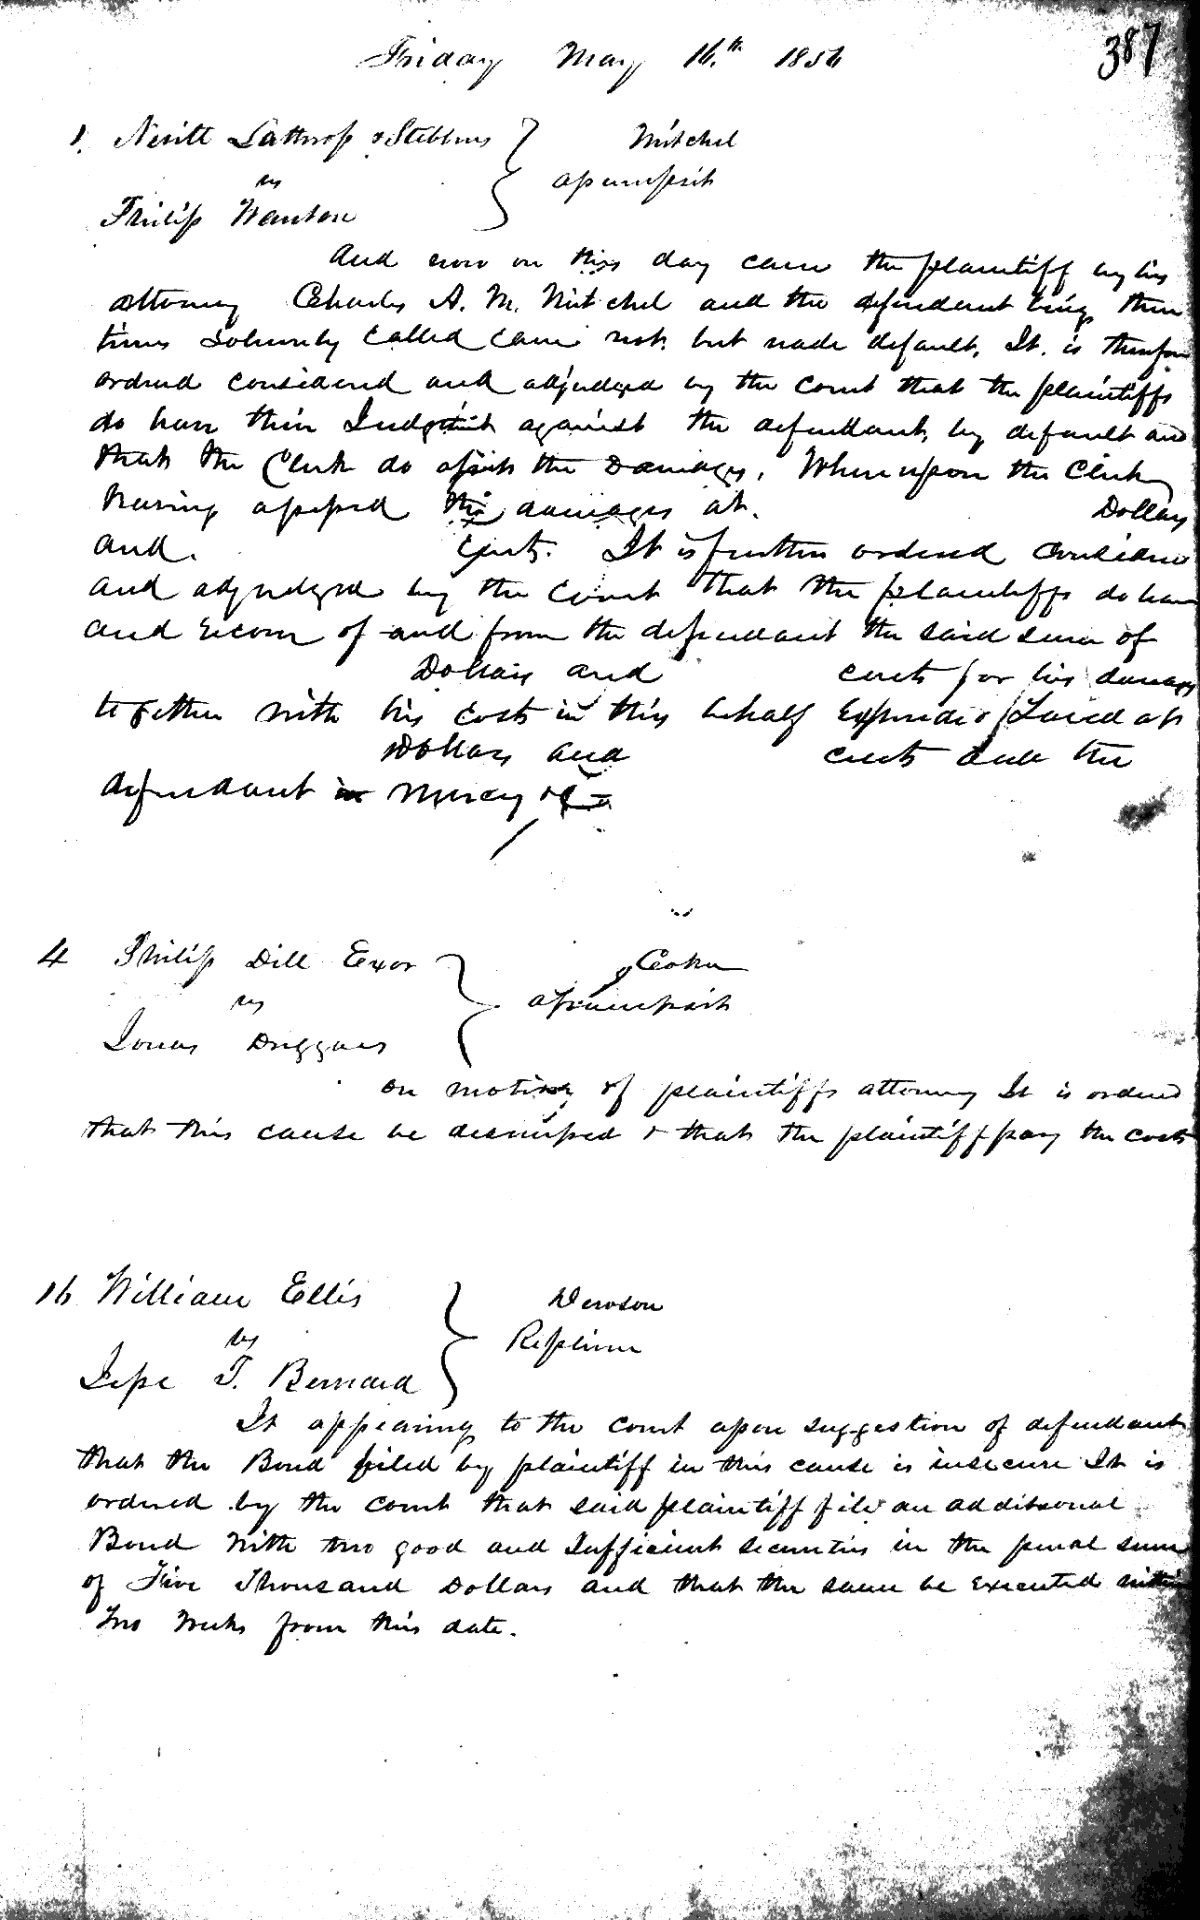 387
Friday May 16.th 1856
1. Nevitt Lathrop & Stebbins Mitchel
vs assumpsit
Philip Wanton
And now on this day came the plaintiff by his
attorney Charles A. M. Mitchel and the defendant being three
times solemnly called came not, but made default, It. is therefore
ordered considered and adjudged by the Court that the plaintiffs
do have their Judgment against the defendant, by default and
that the Clerk do assess the Damages, Whereupon the Clerk
having assessed the damages at. Dollars
and. Cents. It is further ordered considered
and adjudged by the Court that the plaintiffs do have
and recover of and from the defendant the said sum of
Dollars and cents for his damages
together with his costs in this behalf Expended Taxed at
Dollars and cents and the
defendant in Mercy &c
4 Philip Dill Exor
vs assumpsit
Jonas Driggars
On motion of plaintiffs attorney It is ordered
that this cause be dismissed & that the plaintiff pay the costs
16 William Ellis Dawson
vs Replevin
Jesse T. Bernard
It appearing to the Court upon suggestion of defendant
that the Bond filed by plaintiff in this cause is insecure It is
ordered by the Court that said plaintiff file an additional
Bond With two good and Sufficient securities in the penal sum
of Five Thousand Dollars and that the same be executed within
Two Weeks from this date.